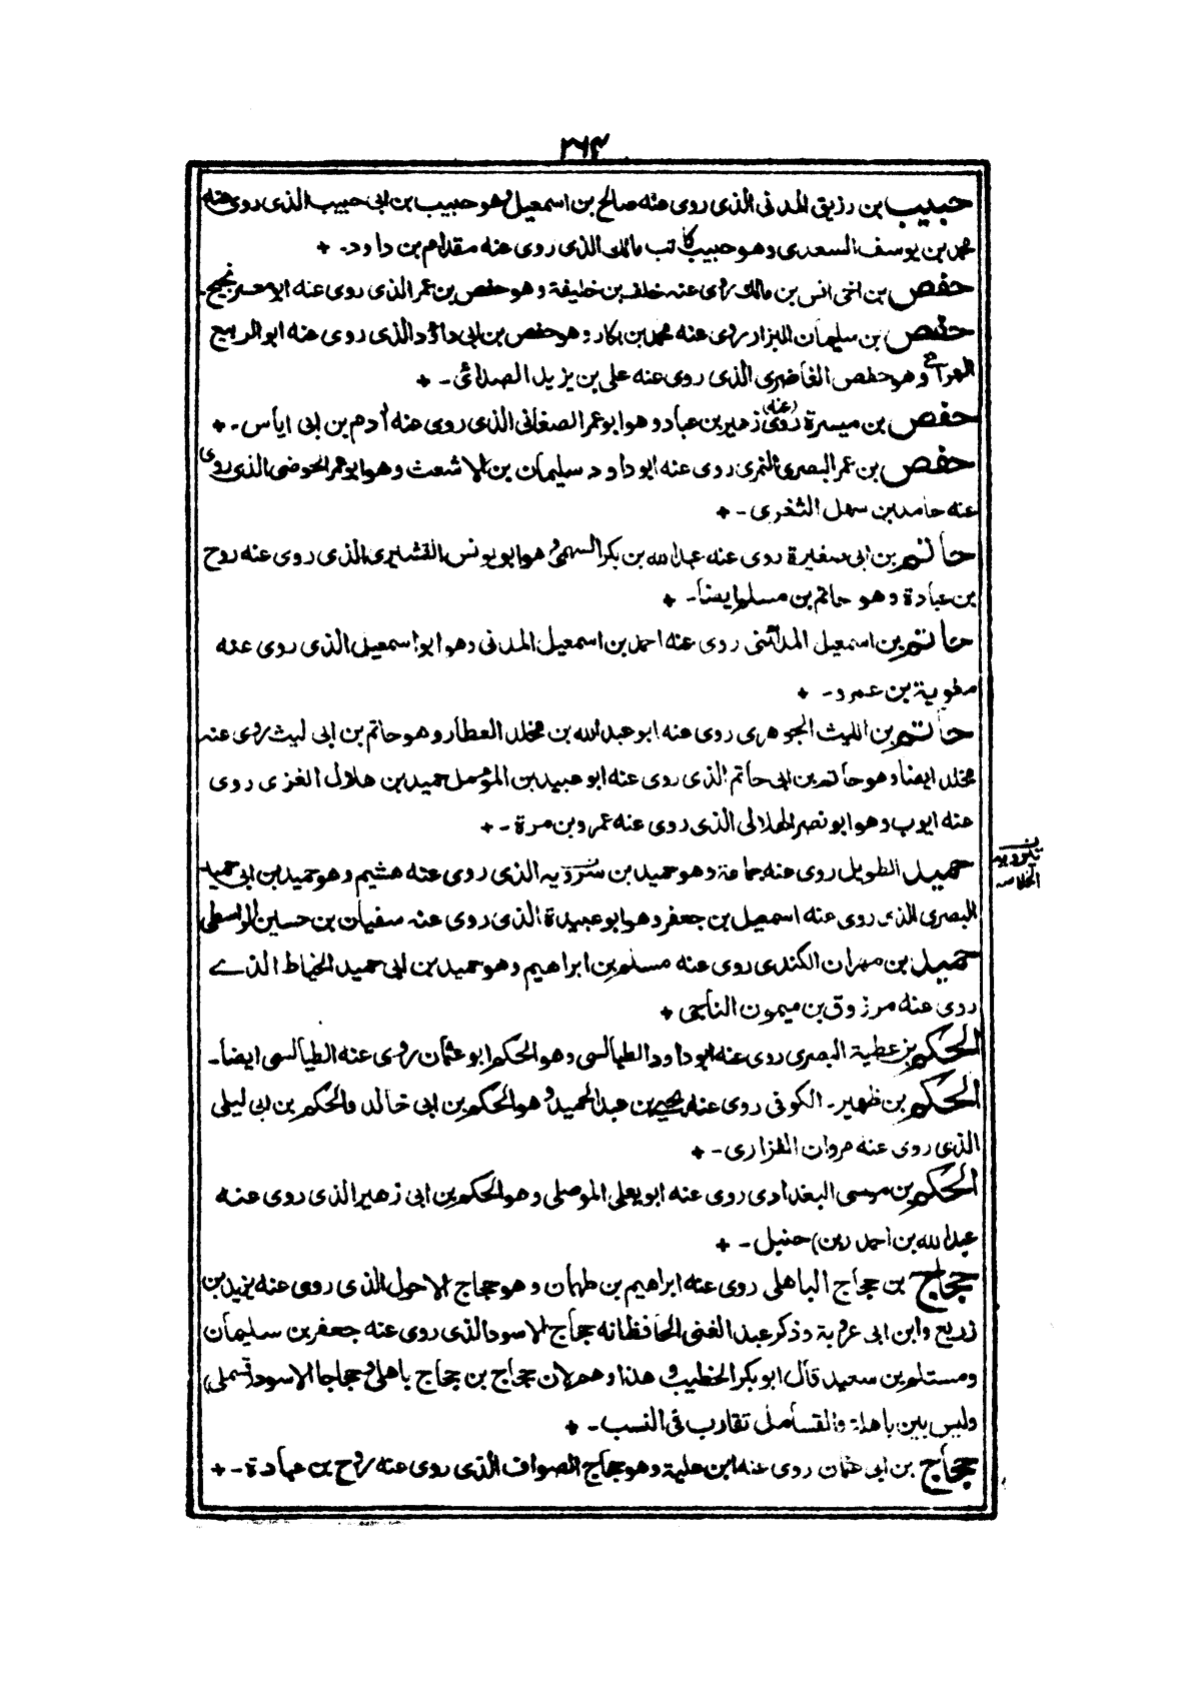 ٢٦٤
حبيب بن رزيق المدنى الذى روى عنه صالح بن اسمعيل وهو حبيب بن ابى حبيب الذى روى عنه
محمد بن يوسف السعدى وهو حبيب كاتب مالك الذى روى عنه مقدام بن داود۔ +
حفص بن اخى انس بن مالك روى عنه خلف بن خليفة وهو حفص بن عمر الذى روى عنه ابو معشر نجيح۔
حفص بن سليمان البزار روى عنه محمد بن بكار وهو حفص بن ابى داؤد الذى روى عنه ابو الربيع
الزهرانى وهو حفص الغاضرى الذى روى عنه على بن يزيد الصدائى۔ +
حفص بن ميسرة روى (عنه) زهير بن عباد وهو ابو عمر الصغانى الذى روى عنه أدم بن ابى اياس۔ +
حفص بن عمر البصرى النمرى روى عنه ابو داود سليمان بن الاشعث وهو ابو عمر الحوضى الذى روى
عنه حامد بن سهل الثغرى۔ +
حاتم بن ابى صغيرة روى عنه عبد الله بن بكر السهمى وهو ابو يونس القشيرى الذى روى عنه روح
بن عبادة وهو حاتم بن مسلم ايضا۔ +
حاتم بن اسمعيل المدائنى روى عنه احمد بن اسمعيل المدنى وهو ابو اسمعيل الذى روى عنه
معوية بن عمرو۔ +
حاتم بن الليث الجوهرى روى عنه ابو عبد الله بن مخلد العطار وهو حاتم بن ابى ليث روى عنه
مخلد ايضا وهو حاتم بن ابى حاتم الذى روى عنه ابو عبيد بن المؤمل حميد بن هلال الغزى روى
عنه ايوب وهو ابو نصر الهلالى الذى روى عنه عمرو بن مرة۔ +
حميد الطويل روى عنه جماعة وهو حميد بن تيرويه الذى روى عنه هشيم وهو حميد بن ابى حميد
البصرى الذى روى عنه اسمعيل بن جعفر وهو ابو عبيدة الذى روى عنه سفيان بن حسين الواسطى
حميد بن مهران الكندى روى عنه مسلم بن ابراهيم وهو حميد بن ابى حميد الخياط الذے
روى عنه مرزوق بن ميمون الناجى +
الحكم بن عطية البصرى روى عنه ابو داود الطيالسى وهو الحكم ابو عثمان روى عنه الطيالسى ايضا۔
الحكم بن ظهير۔ الكوفى روى عنه يحيى بن عبد الحميد وهو الحكم بن ابى خالد والحكم بن ابى ليلى
الذى روى عنه مروان الفزارى۔ +
الحكم بن موسى البغدادى روى عنه ابو يعلى الموصلى وهو الحكم بن ابى زهير الذى روى عنه
عبد الله بن احمد (بن) حنبل۔ +
حجاج بن حجاج الباهلى روى عنه ابراهيم بن طهمان وهو حجاج الاحول الذى روى عنه يزيد بن
زريع وابن ابى عروبة وذكر عبد الغنى الحافظ انه حجاج الاسود الذى روى عنه جعفر بن سليمان
ومسلم بن سعيد قال ابو بكر الخطيب و هذا وهم لان حجاج بن حجاج باهلى وحجاجا الاسود (قسملى)
وليس بين باهلة والقسامل تقارب فى النسب۔ +
حجاج بن ابى عثمان روى عنه ابن علية وهو حجاج الصواف الذى روى عنه روح بن عبادة۔ +
ن
تيرويه
الخلاصه